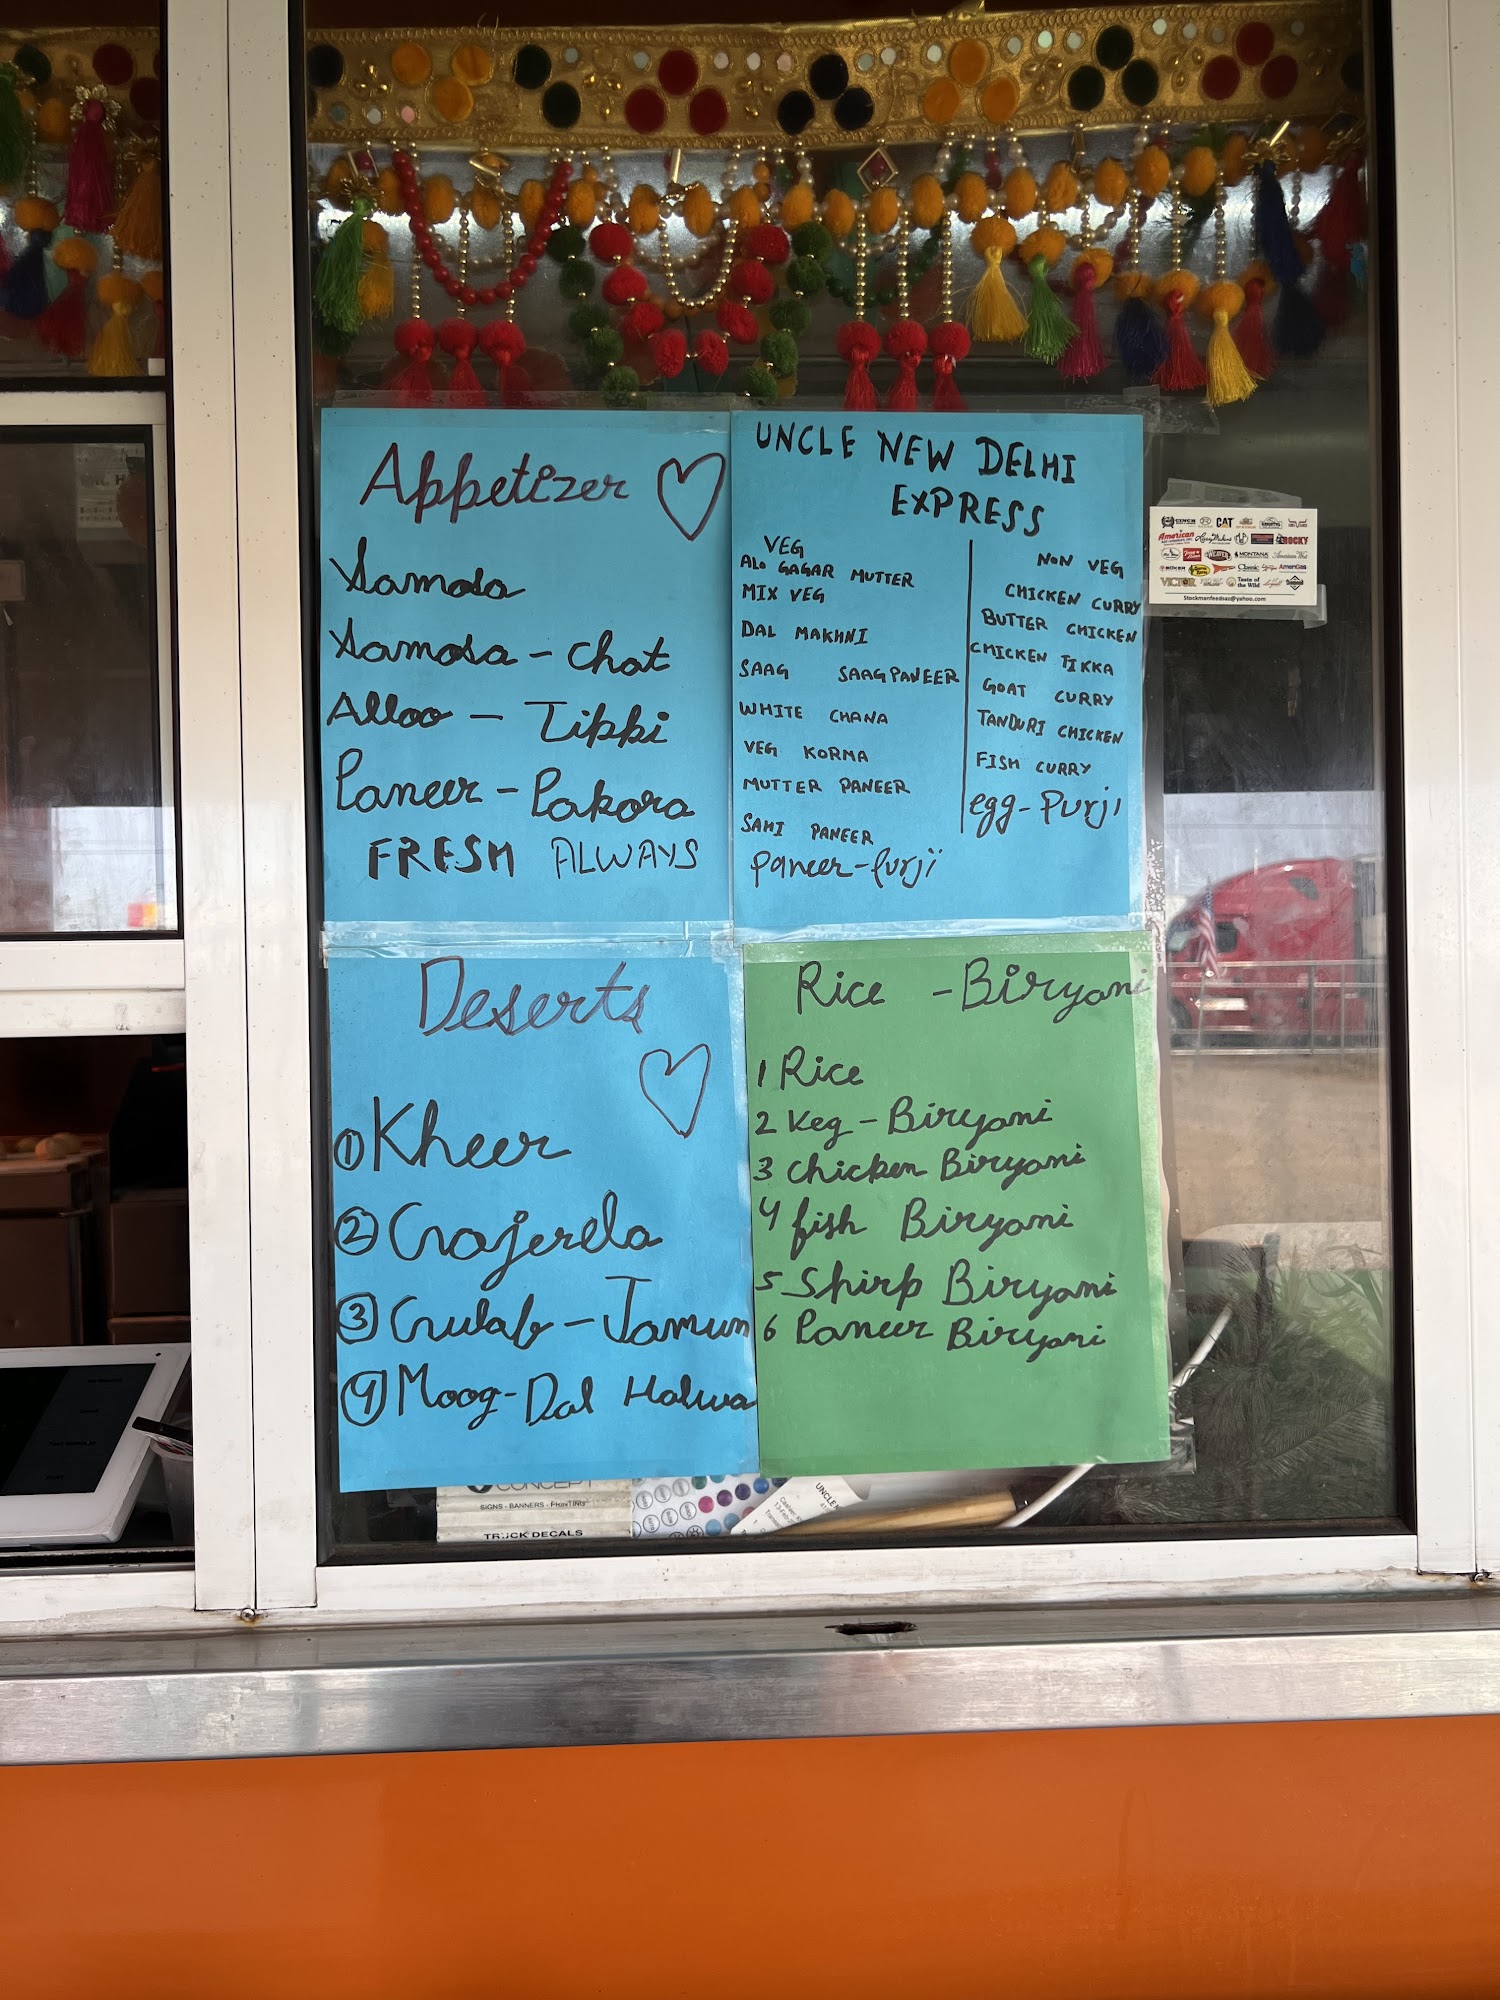 Appetizer
Samosa
Samosa - Chat
Alloo - Tikki
Paneer - Pakora
FRESH ALWAYS
UNCLE NEW DELHI
EXPRESS
VEG
ALO GAGAR MUTTER
MIX VEG
DAL MAKHNI
SAAG SAAG PANEER
WHITE CHANA
VEG KORMA
MUTTER PANEER
SAHI PANEER
Paneer-Purji
NON VEG
CHICKEN CURRY
BUTTER CHICKEN
CHICKEN TIKKA
GOAT CURRY
TANDURI CHICKEN
FISH CURRY
egg-Purji
Deserts
1 Kheer
2 Gajerela
3 Gulab - Jamun
4 Moog-Dal Halwa
Rice - Biryani
1 Rice
2 Veg - Biryani
3 Chicken Biryani
4 fish Biryani
5 Shirp Biryani
6 Paneer Biryani
CINCH CAT
American
ROCKY
MONTANA
Classic AmeriGas
VICTOR Taste of the Wild
Stockmanfeedsaz@yahoo.com
CONCEPT
SIGNS - BANNERS - PRINTING
TRUCK DECALS